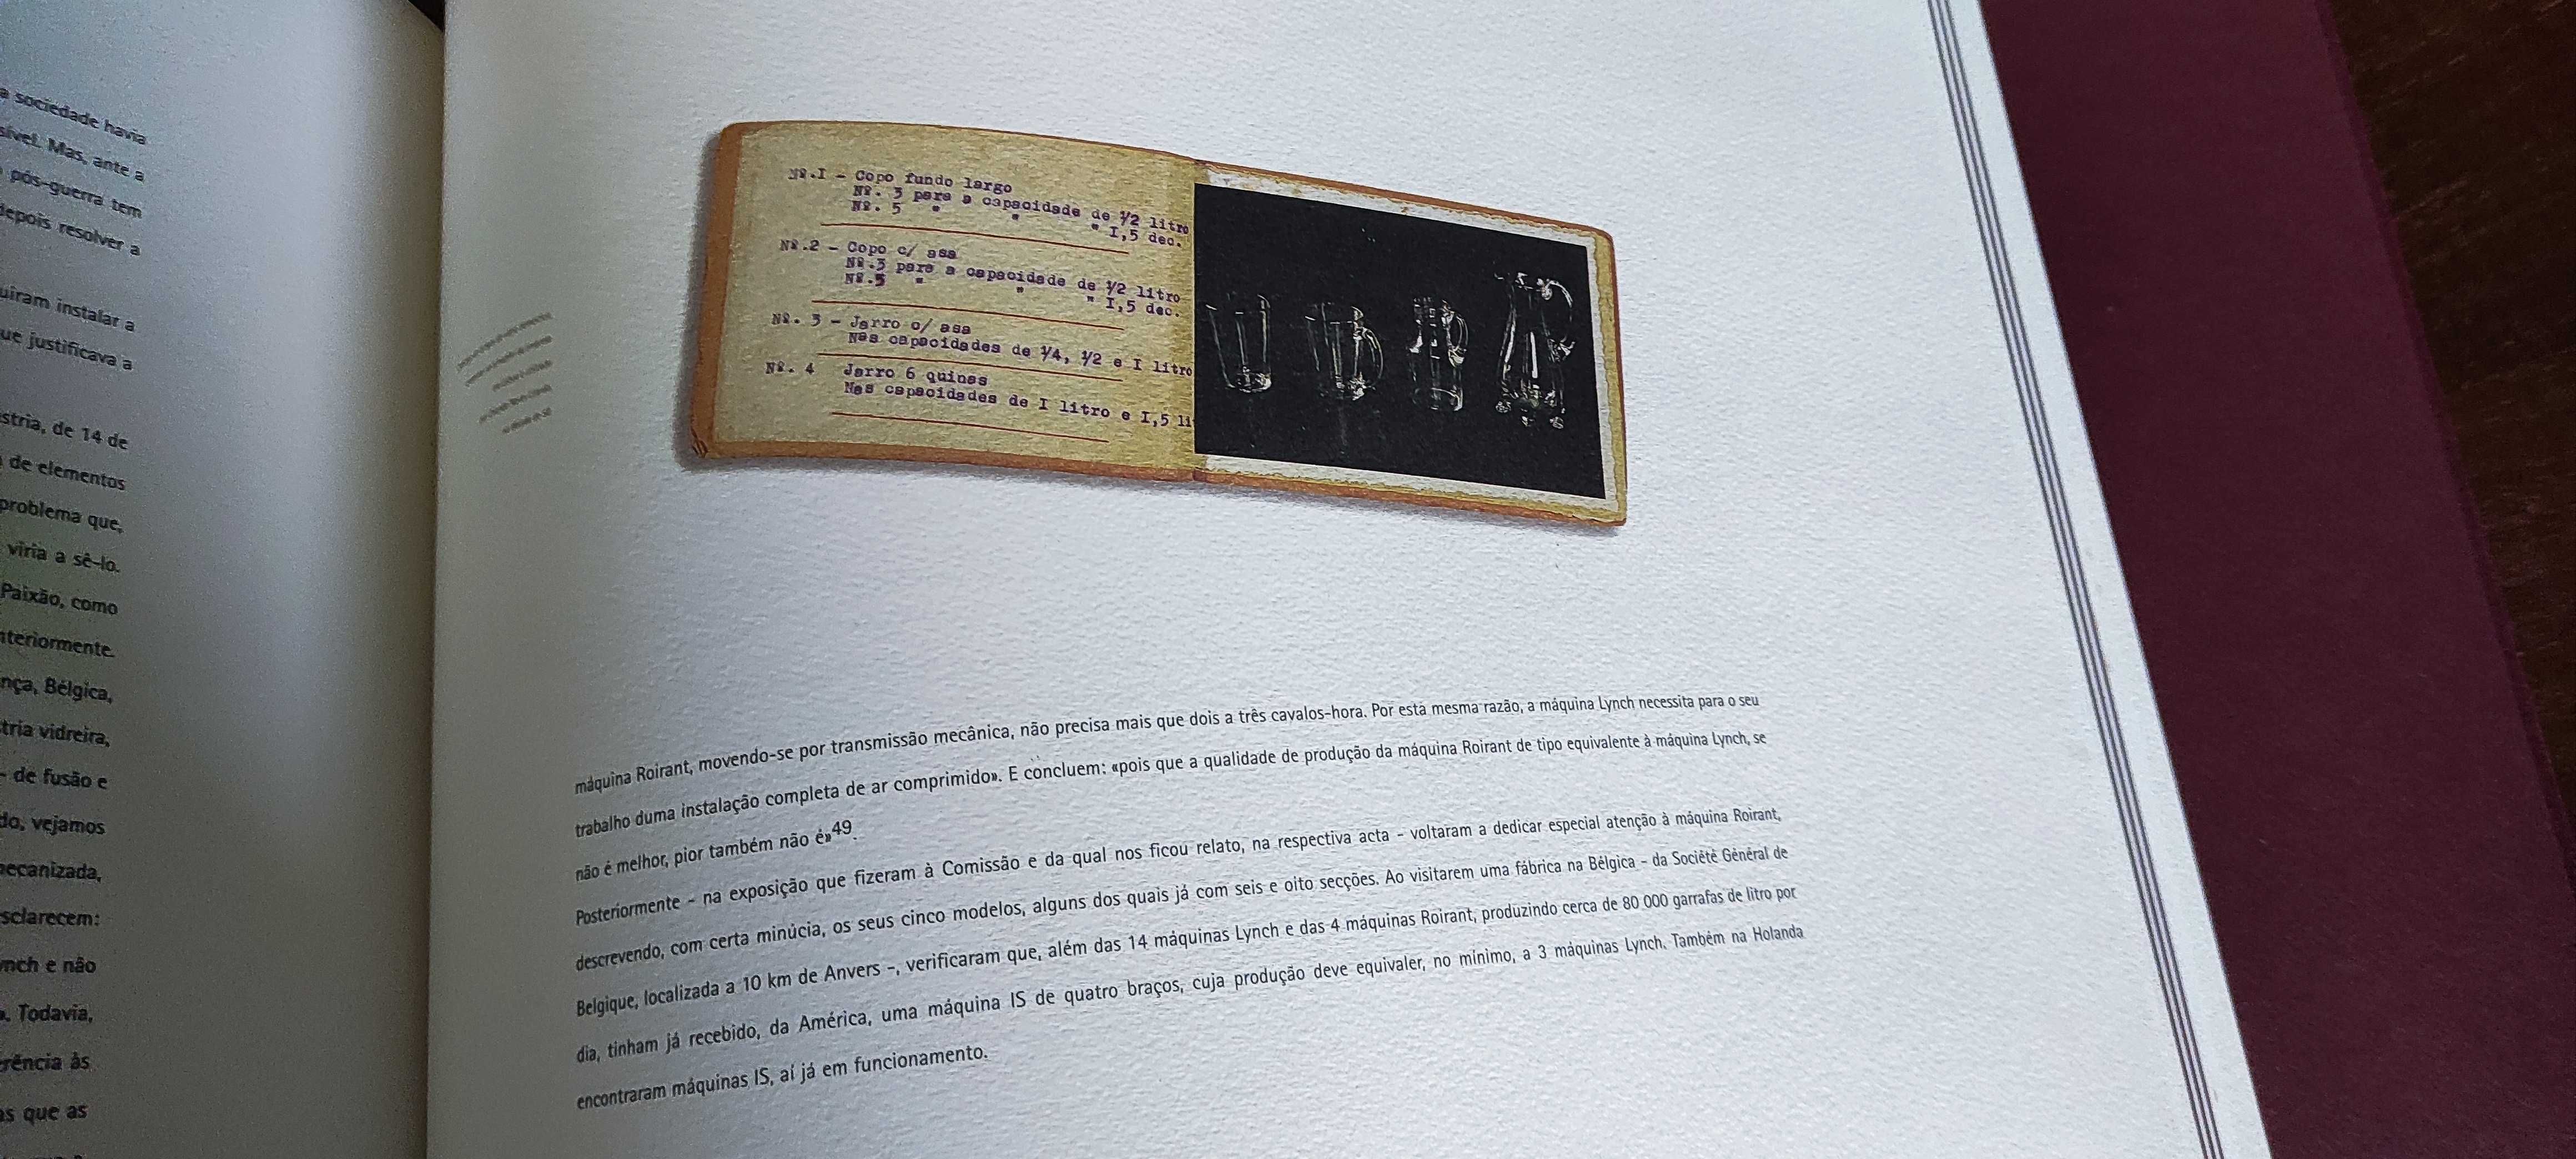 a sociedade havia
sível. Mas, ante a
pós-guerra tem
depois resolver a
uiram instalar a
ue justificava a
stria, de 14 de
de elementos
problema que,
viria a sê-lo.
Paixão, como
nteriormente.
nça, Bélgica,
tria vidreira,
- de fusão e
do, vejamos
necanizada,
sclarecem:
nch e não
». Todavia,
rência às
as que as
Nº.I - Copo fundo largo
Nº. 3 para a capacidade de 1/2 litro
Nº. 5 " " " I,5 dec.
Nº.2 - Copo c/ asa
Nº.3 para a capacidade de 1/2 litro
Nº.5 " " " I,5 dec.
Nº. 3 - Jarro c/ asa
Nas capacidades de 1/4, 1/2 e I litro
Nº. 4 Jarro 6 quinas
Nas capacidades de I litro e I,5 li
máquina Roirant, movendo-se por transmissão mecânica, não precisa mais que dois a três cavalos-hora. Por esta mesma razão, a máquina Lynch necessita para o seu
trabalho duma instalação completa de ar comprimido». E concluem: «pois que a qualidade de produção da máquina Roirant de tipo equivalente à máquina Lynch, se
não é melhor, pior também não é»49.
Posteriormente - na exposição que fizeram à Comissão e da qual nos ficou relato, na respectiva acta - voltaram a dedicar especial atenção à máquina Roirant,
descrevendo, com certa minúcia, os seus cinco modelos, alguns dos quais já com seis e oito secções. Ao visitarem uma fábrica na Bélgica - da Société Général de
Belgique, localizada a 10 km de Anvers -, verificaram que, além das 14 máquinas Lynch e das 4 máquinas Roirant, produzindo cerca de 80 000 garrafas de litro por
dia, tinham já recebido, da América, uma máquina IS de quatro braços, cuja produção deve equivaler, no mínimo, a 3 máquinas Lynch. Também na Holanda
encontraram máquinas IS, aí já em funcionamento.